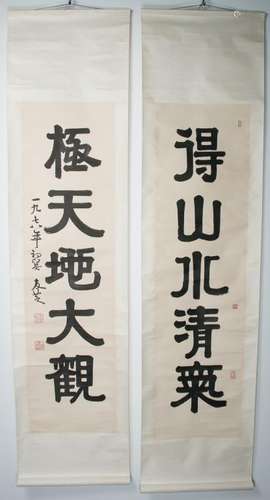 得山水清氣
極天地大觀
一九七六年初冬